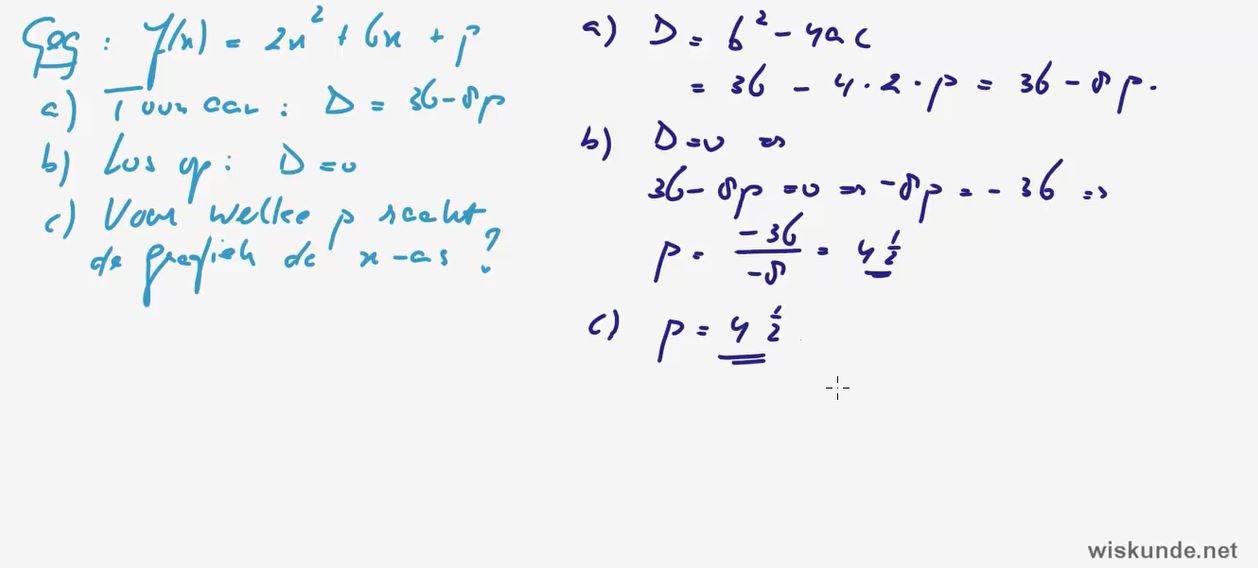 Geg: f(x) = 2x² + 6x + p
a) Toon aan: D = 36-8p
b) Los op: D=0
c) Voor welke p raakt
de grafiek de x-as?
a) D = b² - 4ac
= 36 - 4·2·p = 36 - 8p.
b) D=0 ⇒
36-8p=0 ⇒ -8p = -36 ⇒
p = -36/-8 = 4 1/2
c) p = 4 1/2
wiskunde.net